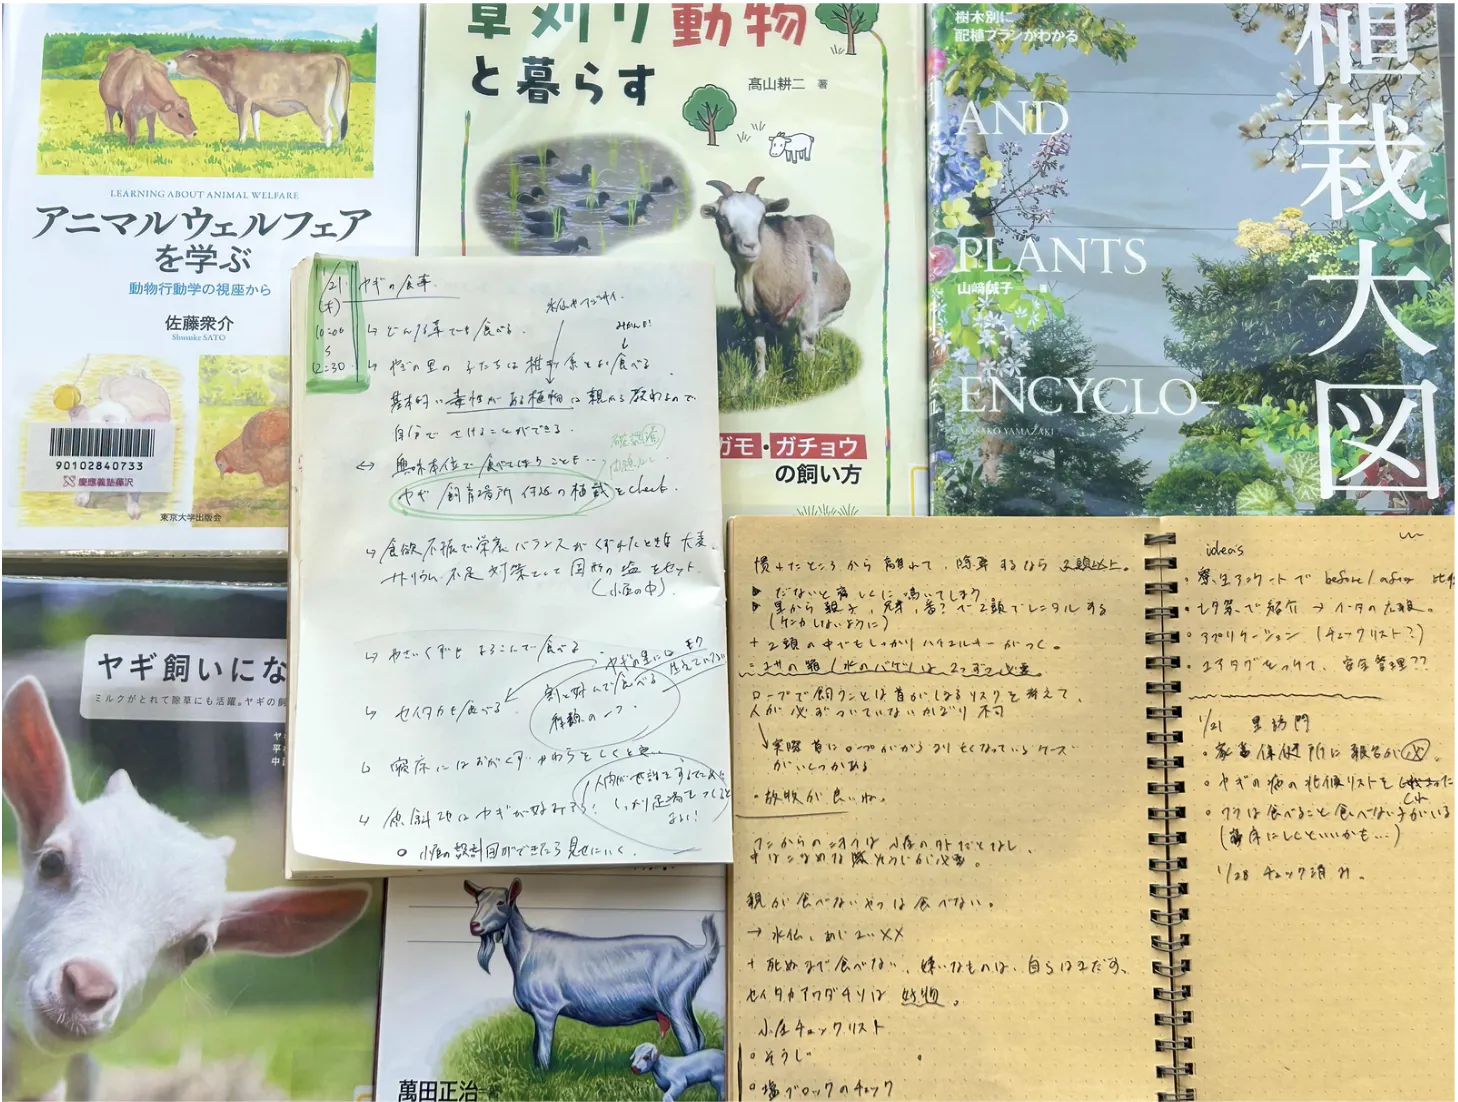 LEARNING ABOUT ANIMAL WELFARE
アニマルウェルフェア
を学ぶ
動物行動学の視座から
佐藤衆介
Shusuke SATO
90102840733
慶應義塾藤沢
東京大学出版会
草刈り動物
と暮らす
髙山耕二 著
ガモ・ガチョウ
の飼い方
樹木別に
配植プランがわかる
植栽大図
AND
PLANTS
山﨑誠子 著
ENCYCLO-
MASAKO YAMAZAKI
ヤギ飼いにな
ミルクがとれて除草にも活躍。ヤギの飼
萬田正治
1/21
(木)
10:00
12:30
ヤギの食事
↳ どんな草でも食べる。
↳ やぎの里の子たちは柑橘系をよく食べる。
みかんが
基本的に毒性がある植物は親から教わるので
自分でさけることができる。
↔ 興味本位で食べてしまうことも…
ヤギ飼育場所付近の植栽をcheck.
↳ 食欲不振で栄養バランスがくずれたときは大麦。
ナトリウム不足対策として固形の塩をセット。
(小屋の中)
↳ やさいくずもよろこんで食べる。
↳ セイタカも食べる
割と好んで食べる
種類の一つ
ヤギの里には
生えていない
↳ 寝床にはおがくず・わらをしくと良い
↳ 傾斜地はヤギが好みそう!
○ 小屋の設計図ができたら見せにいく。
慣れたところから離れて、除草するなら2頭以上。
▶ じゃないと寂しくて鳴いてしまう
▶ 里から親子、兄弟、番?で2頭でレンタルする
(ケンカしないように)
+ 2頭の中でもしっかりハイエルキーがつく。
エサの箱/水のバケツは2つずつ必要。
ロープで飼うことは首がしまるリスクを考えて、
人が必ずついていないかぎり不可
↓実際首にロープがからまり亡くなっているケース
がいくつかある
・放牧が良いね。
フンからのニオイは小屋の外だとなし、
中はこまめな掃除が必要。
親が食べないやつは食べない。
→ 水仙、あじさい××
+ 死ぬまで食べない、嫌いなものは、自らはまだす、
セイタカアワダチソウは好物。
小屋チェックリスト
○ そうじ
○ 塩ブロックのチェック
ideas
・寮生アンケートで before/after 比較
・七夕祭で紹介 →
・アプリケーション (チェックリスト?)
・エアタグをつけて、安全管理??
1/21 里訪問
・家畜保健所に報告が必
・ヤギの病の
・ワラは食べること食べない子がいる
(寝床にしくといいかも…)
1/28 チェック済み。